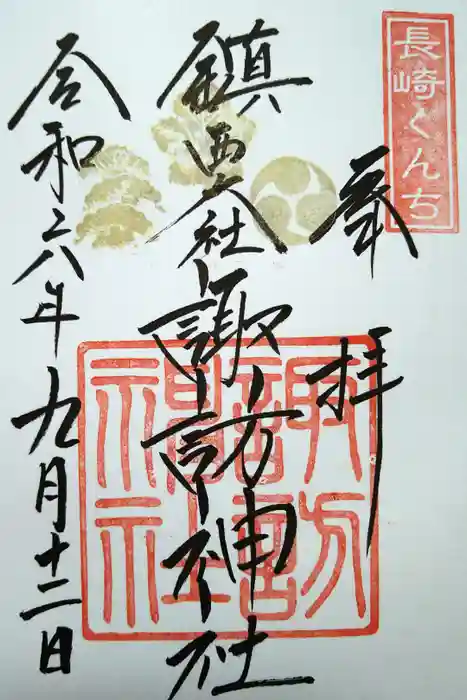 長崎くんち
奉拝
鎮西大社諏訪神社
令和六年九月十二日
諏訪
神社